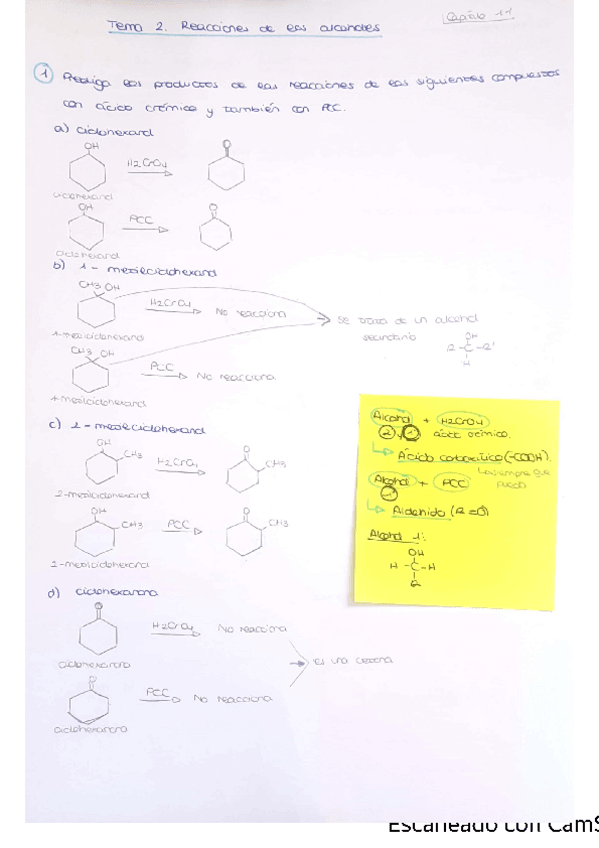 Capítulo 11
Tema 2. Reacciones de los alcoholes
1 Prediga los productos de las reacciones de los siguientes compuestos
con ácido crómico y también con PCC.
a) ciclohexanol
OH
H2CrO4
O
ciclohexanol
OH
PCC
O
ciclohexanol
b) 1-metilciclohexanol
CH3 OH
H2CrO4
No reacciona
1-metilciclohexanol
Se trata de un alcohol
secundario
OH
R-C-R'
H
CH3 OH
PCC
No reacciona
1-metilciclohexanol
c) 2-metilciclohexanol
OH
CH3
H2CrO4
O
CH3
2-metilciclohexanol
OH
CH3
PCC
O
CH3
2-metilciclohexanol
Alcohol + H2CrO4
2 y 1 ácido crómico.
Ácido carboxílico (-COOH).
Alcohol + PCC
siempre que
pueda
1
Aldehído (R=O)
Alcohol 1:
OH
H-C-H
R
d) ciclohexanona
O
H2CrO4
No reacciona
ciclohexanona
Es una cetona
O
PCC
No reacciona
ciclohexanona
Escaneado con CamS